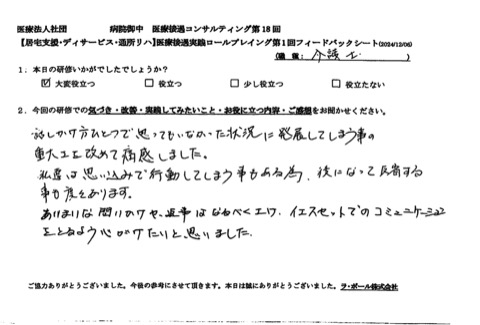 医療法人社団　　　病院御中　医療接遇コンサルティング第18回
【居宅支援・デイサービス・通所リハ】医療接遇実践ロールプレイング第1回フィードバックシート(2024/12/06)
(職種: 介護士 )
1．本日の研修いかがでしたでしょうか？
☑ 大変役立つ　□ 役立つ　□ 少し役立つ　□ 役立たない
2．今回の研修での気づき・改善・実践してみたいこと・お役に立つ内容・ご感想をお聞かせください。
話しかけ方ひとつで思ってもいなかった状況に発展してしまう事の
重大さを改めて痛感しました。
私達は思い込みで行動してしまう事もある為、後になって反省する
事も度々あります。
あいまいな問いかけや、返事はなるべくさけ、イエスセットでのコミュニケーション
をとれるよう心がけたいと思いました。
ご協力ありがとうございました。今後の参考にさせて頂きます。本日は誠にありがとうございました。ラ・ポール株式会社